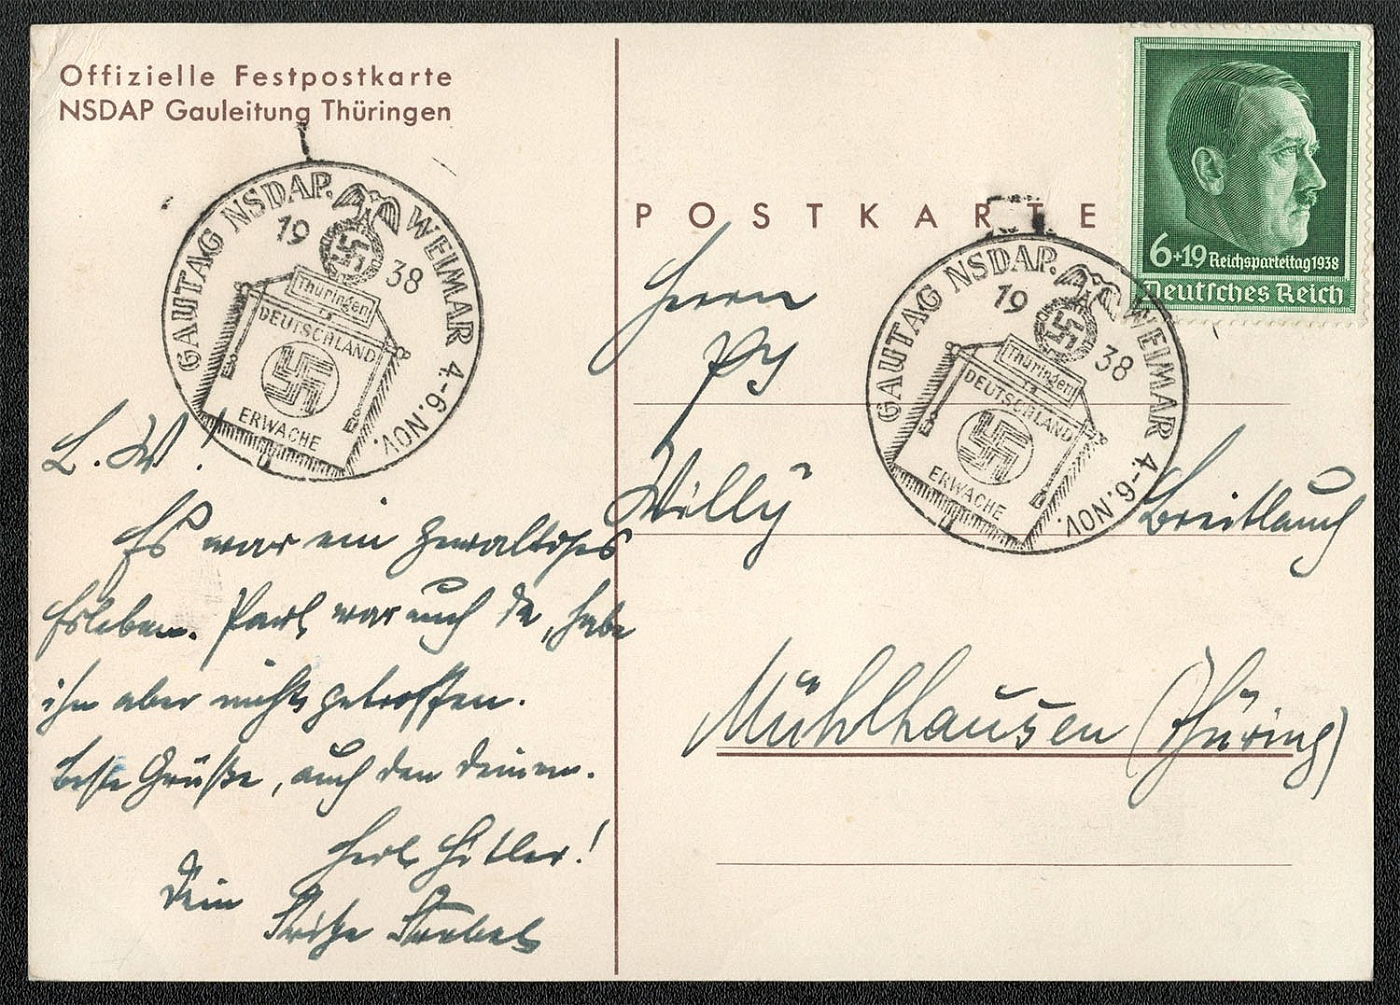 Offizielle Festpostkarte
NSDAP Gauleitung Thüringen
GAUTAG NSDAP. WEIMAR 4.-6. NOV.
19 38
Thüringen
DEUTSCHLAND
ERWACHE
L. W!
Es war ein gewaltiges
Erleben. Paul war auch da, habe
ihn aber nicht getroffen.
Beste Grüße, auch den Deinen.
Heil Hitler!
Dein
POSTKARTE
6+19 Reichsparteitag 1938
Deutsches Reich
GAUTAG NSDAP. WEIMAR 4.-6. NOV.
19 38
Thüringen
DEUTSCHLAND
ERWACHE
Herrn
Pg
Willy Breitlauch
Mühlhausen (Thüring)